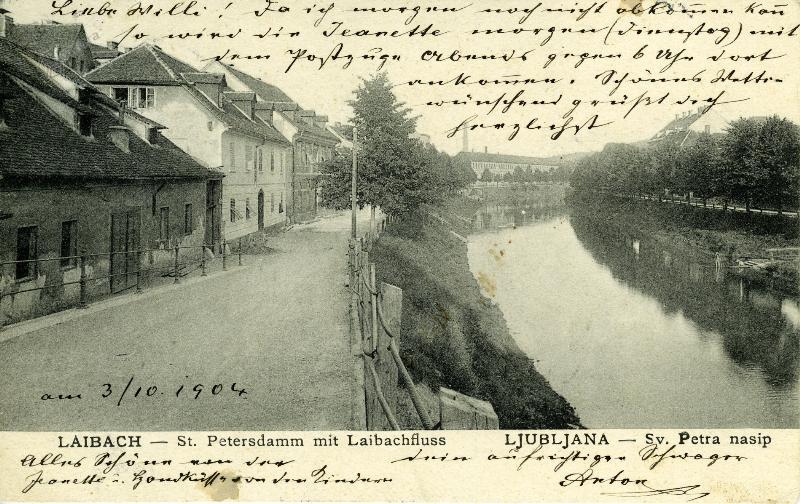 Liebe Willi! Da ich morgen noch nicht abkommen kann
so wird die Jeanette morgen (Dienstag) mit
dem Postzuge Abends gegen 6 Uhr dort
ankommen. Schönes Wetter
wünschend grüßt dich
herzlichst
am 3/10. 1904
LAIBACH — St. Petersdamm mit Laibachfluss
LJUBLJANA — Sv. Petra nasip
Alles Schöne von der
Jeanette u. Handküsse von den Kindern
dein aufrichtiger Schwager
Anton